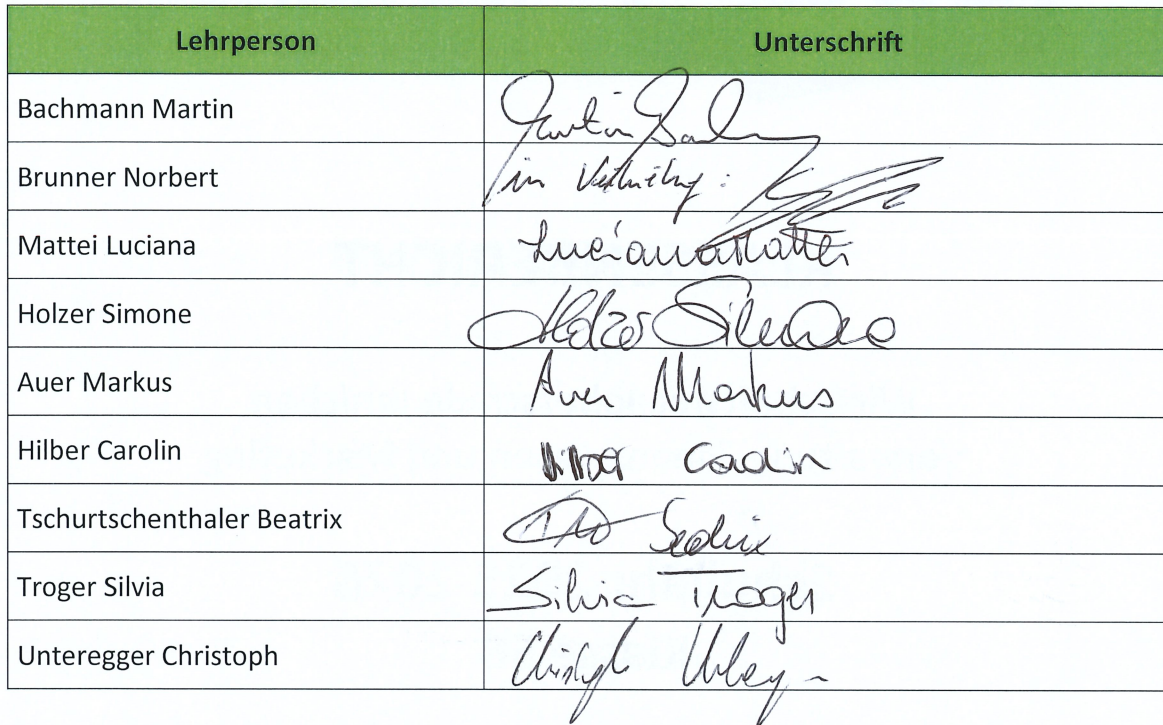 Lehrperson Unterschrift
Bachmann Martin Martin
Brunner Norbert in Vertretung:
Mattei Luciana Luciana Mattei
Holzer Simone Holzer Simone
Auer Markus Auer Markus
Hilber Carolin Hilber Carolin
Tschurtschenthaler Beatrix Beatrix
Troger Silvia Silvia Troger
Unteregger Christoph Christoph